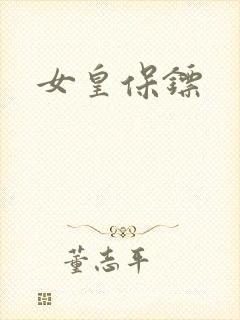 女皇保镖
董志平